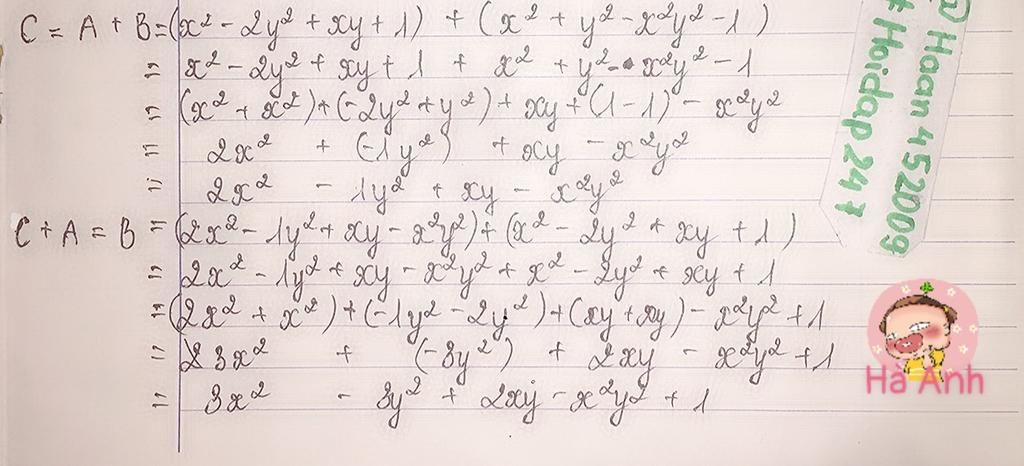 C = A + B = (x² - 2y² + xy + 1) + (x² + y² - x²y² - 1)
= x² - 2y² + xy + 1 + x² + y² - x²y² - 1
= (x² + x²) + (-2y² + y²) + xy + (1 - 1) - x²y²
= 2x² + (-1y²) + xy - x²y²
= 2x² - 1y² + xy - x²y²
C + A = B = (2x² - 1y² + xy - x²y²) + (x² - 2y² + xy + 1)
= 2x² - 1y² + xy - x²y² + x² - 2y² + xy + 1
= (2x² + x²) + (-1y² - 2y²) + (xy + xy) - x²y² + 1
= 3x² + (-3y²) + 2xy - x²y² + 1
= 3x² - 3y² + 2xy - x²y² + 1
Haan452009
# Hoidap247
Hà Anh